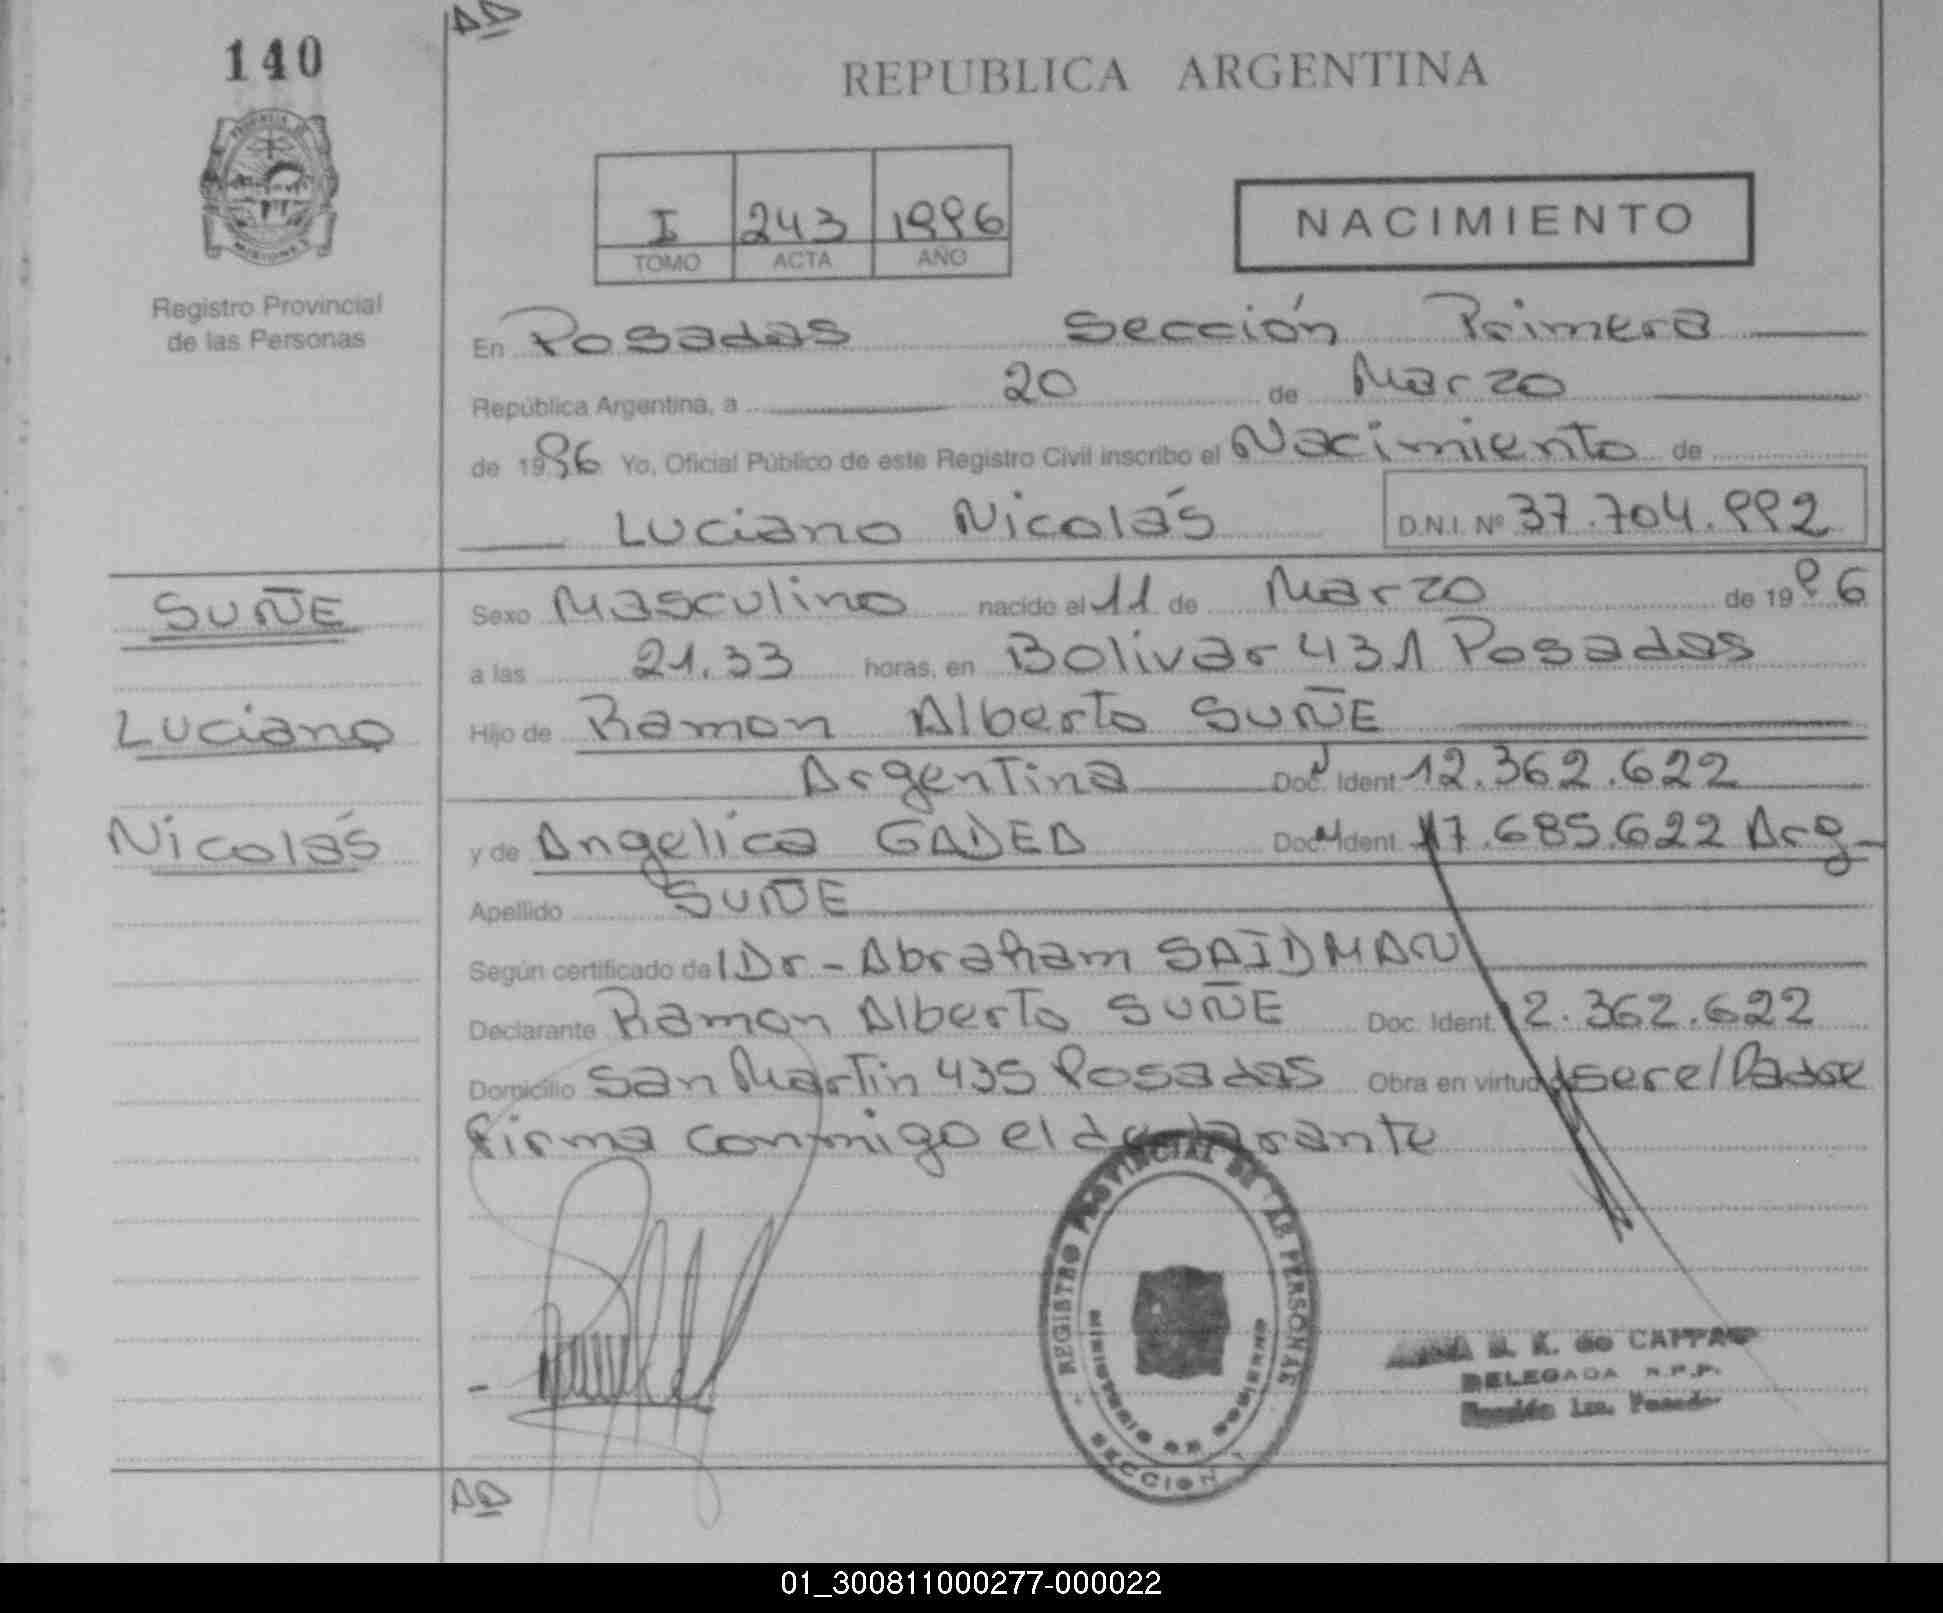 140
AD
REPUBLICA ARGENTINA
I 243 1996
TOMO ACTA AÑO
NACIMIENTO
Registro Provincial
de las Personas
En Posadas Sección Primera
República Argentina, a 20 de Marzo
de 1996 Yo, Oficial Público de este Registro Civil inscribo el Nacimiento de
Luciano Nicolás D.N.I. Nº 37.704.992
SUÑE
Luciano
Nicolás
Sexo Masculino nacido el 11 de Marzo de 1996
a las 21.33 horas, en Bolivar 431 Posadas
Hijo de Ramon Alberto SUÑE
Argentina Doc. Ident 12.362.622
y de Angelica GADEA Doc. Ident 17.685.622 Arg-
Apellido SUÑE
Según certificado del Dr-Abraham SAIDMAN
Declarante Ramon Alberto SUÑE Doc. Ident. 12.362.622
Domicilio San Martin 435 Posadas Obra en virtud d ser el Padre
firma conmigo el declarante
REGISTRO PROVINCIAL DE LAS PERSONAS
MINISTERIO DE GOBIERNO
SECCION
K. de CAPPA
DELEGADA R.P.P.
Sección 1ra. Posadas
AD
01_300811000277-000022